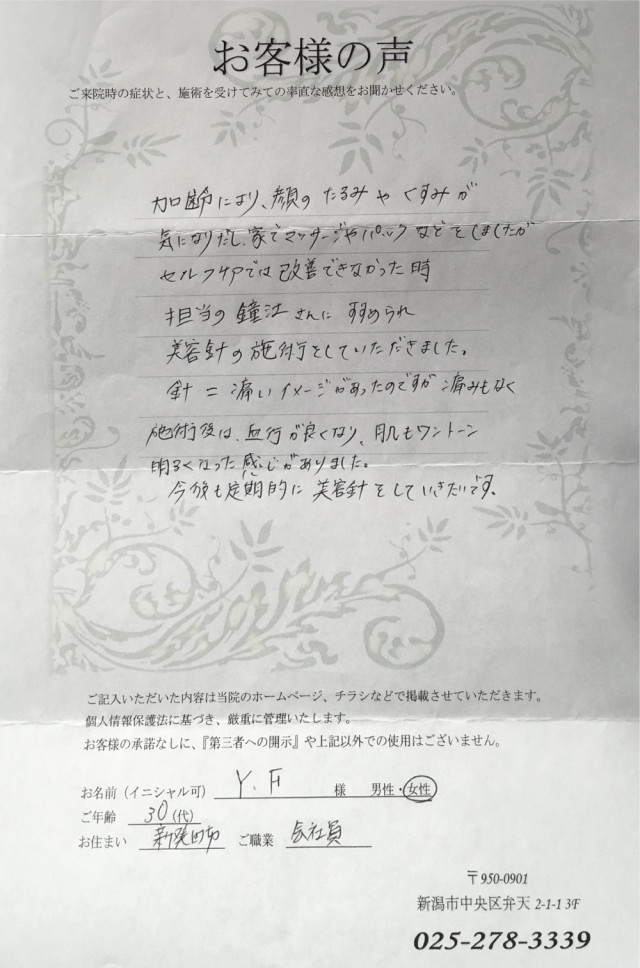 お客様の声
ご来院時の症状と、施術を受けてみての率直な感想をお聞かせください。
加齢により、顔のたるみやくすみが
気になりだし、家でマッサージやパックなどをしましたが
セルフケアでは改善できなかった時
担当の鐘江さんにすすめられ
美容針の施術をしていただきました。
針=痛いイメージがあったのですが痛みもなく
施術後は、血行が良くなり、肌もワントーン
明るくなった感じがありました。
今後も定期的に美容針をしていきたいです。
ご記入いただいた内容は当院のホームページ、チラシなどで掲載させていただきます。
個人情報保護法に基づき、厳重に管理いたします。
お客様の承諾なしに、『第三者への開示』や上記以外での使用はございません。
お名前（イニシャル可） Y.F 様 男性・女性
ご年齢 30(代)
お住まい 新潟市 ご職業 会社員
〒950-0901
新潟市中央区弁天 2-1-1 3F
025-278-3339